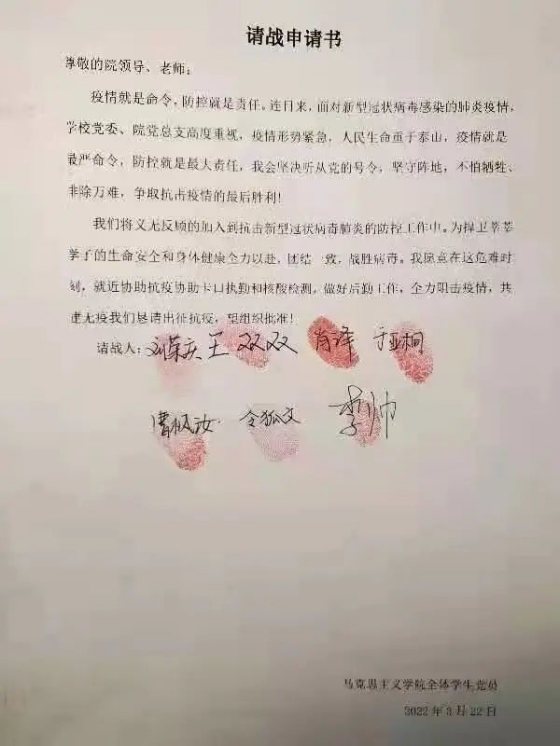 请战申请书
尊敬的院领导、老师：
疫情就是命令，防控就是责任。连日来，面对新型冠状病毒感染的肺炎疫情，
学校党委、院党总支高度重视，疫情形势紧急，人民生命重于泰山，疫情就是
最严命令，防控就是最大责任，我会坚决听从党的号令，坚守阵地，不怕牺牲、
排除万难，争取抗击疫情的最后胜利！
我们将义无反顾的加入到抗击新型冠状病毒肺炎的防控工作中。为捍卫莘莘
学子的生命安全和身体健康全力以赴，团结一致，战胜病毒。我愿意在这危难时
刻，就近协助抗疫协助卡口执勤和核酸检测，做好后勤工作，全力阻击疫情，共
建无疫我们恳请出征抗疫，望组织批准！
请战人：刘荣庆 王双双 肖泽 于亚桐
令狐文 李帅
马克思主义学院全体学生党员
2022年3月22日